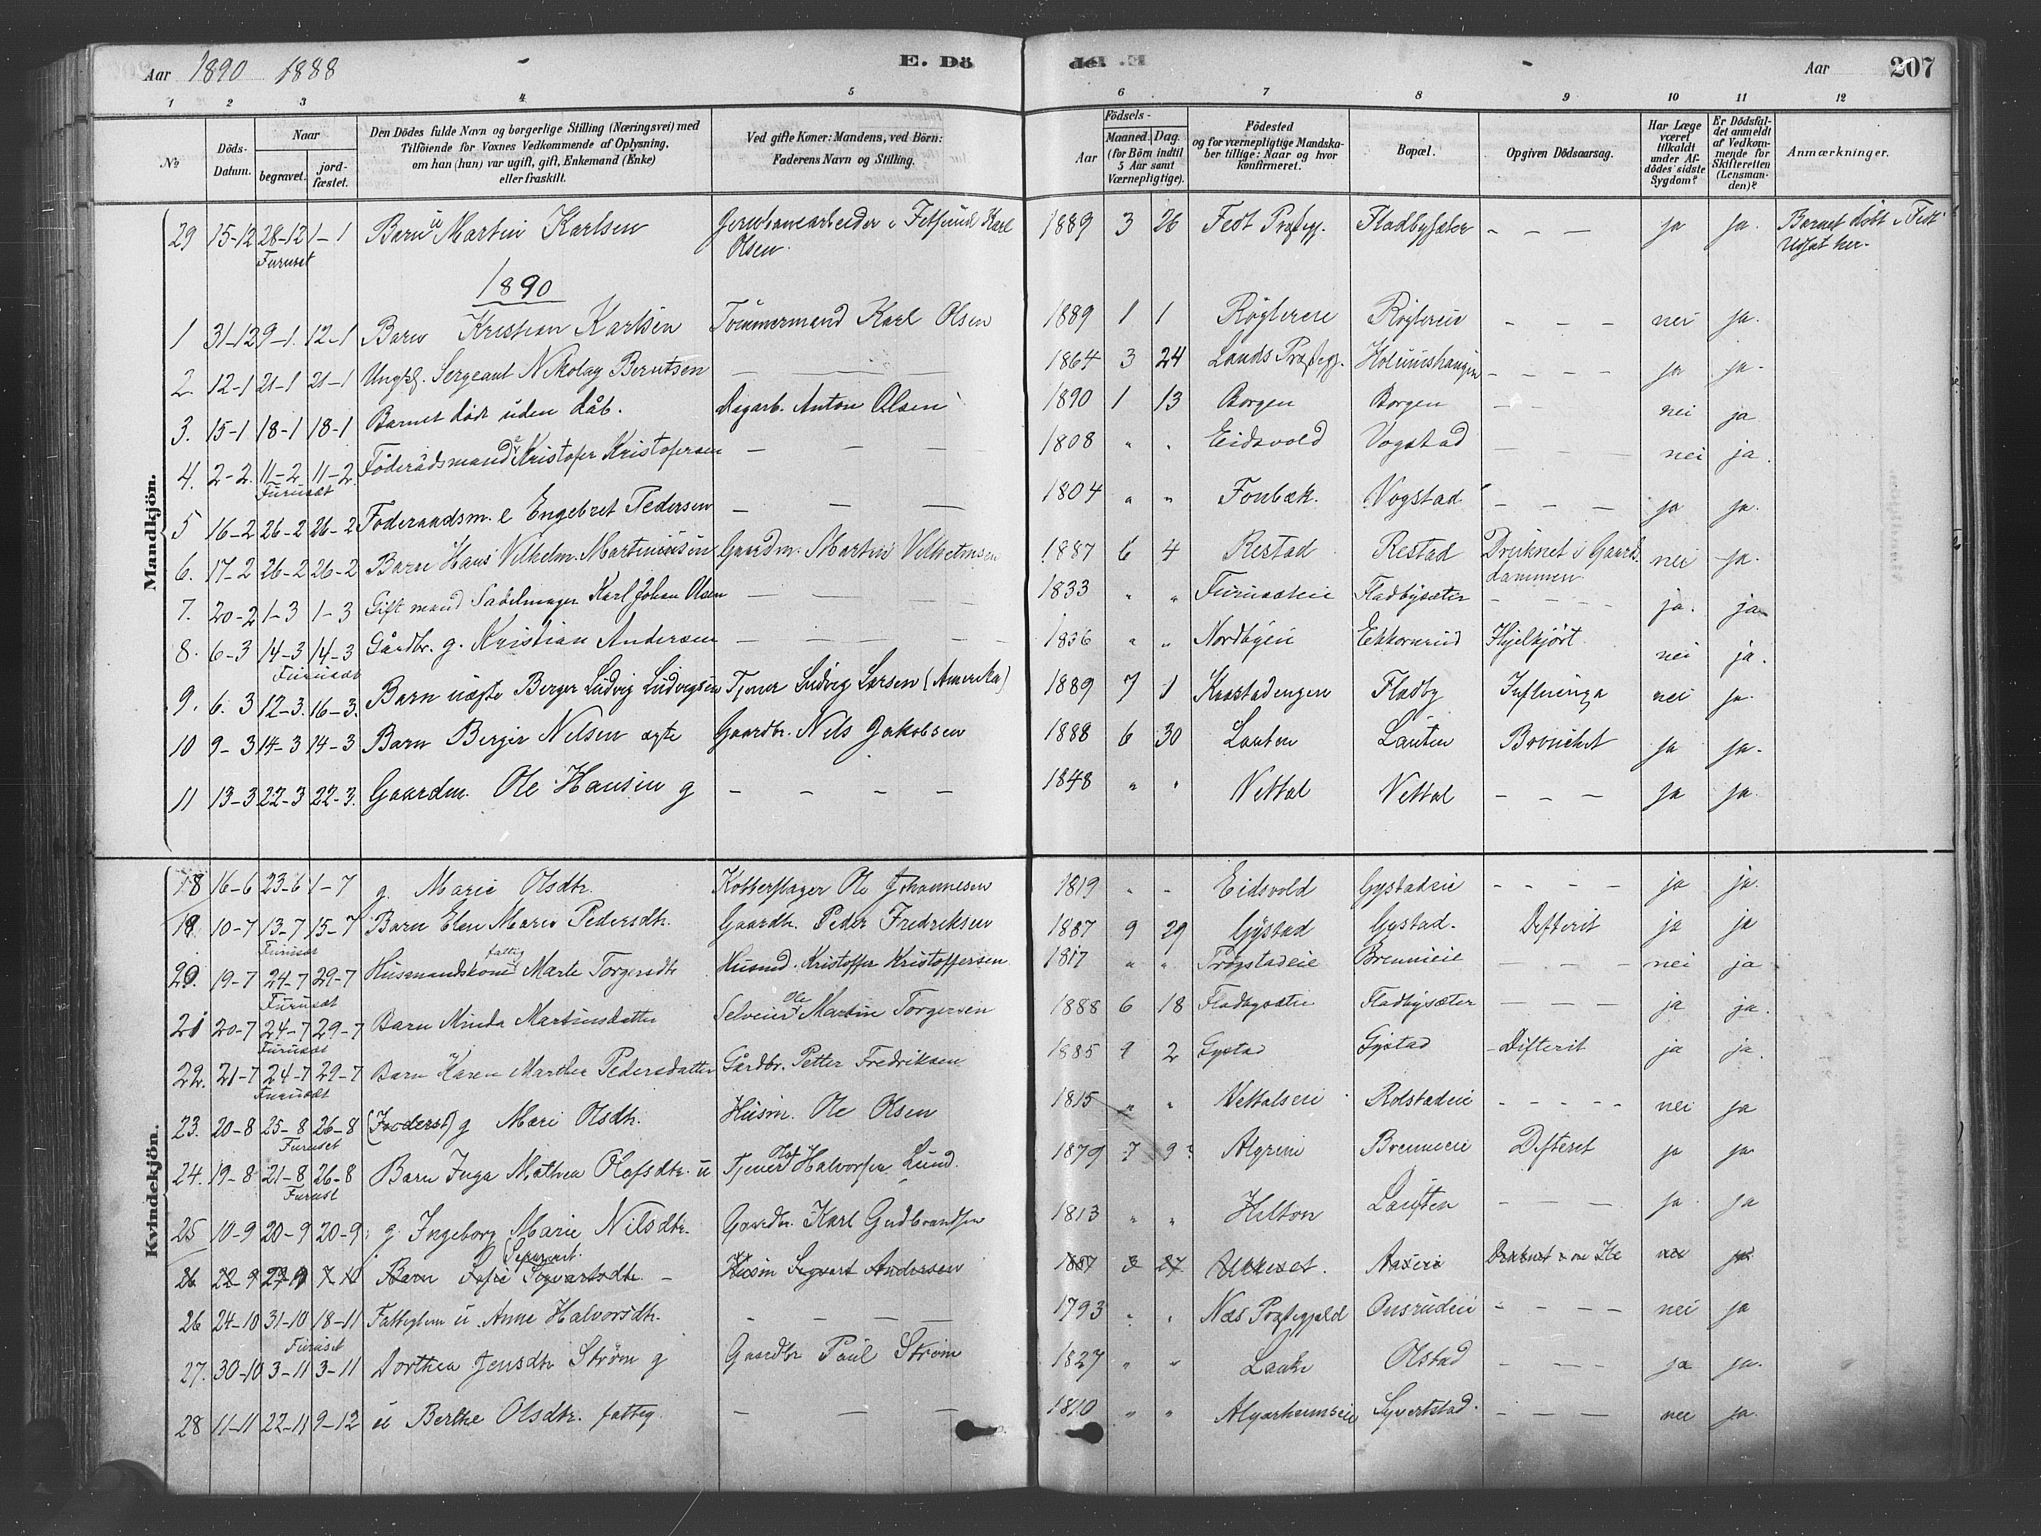 Aar 1890 1888 E. Dö de. E Aar 207
1 2 3 4 5 6 7 8 9 10 11 12
No Döds-Datum. Naar begravet. jord-fæstet. Den Dödes fulde Navn og borgerlige Stilling (Næringsvei) med Tilföiende for Voxnes Vedkommende af Oplysning, om han (hun) var ugift, gift, Enkemand (Enke) eller fraskilt. Ved gifte Koner: Mandens, ved Börn: Faderens Navn og Stilling. Födsels- Aar Maaned. Dag. (for Börn indtil 5 Aar samt Værnepligtige). Födested og for værnepligtige Mandskaber tillige: Naar og hvor konfirmeret. Bopæl. Opgiven Dödsaarsag. Har Læge været tilkaldt under Afdödes sidste Sygdom? Er Dödsfaldet anmeldt af Vedkommende for Skifteretten (Lensmanden)? Anmærkninger.
Mandkjön.
29 15-12 28-12 1-1 Barn u Martin Karlsen Jernbanearbeider i Fetsund Karl Olsen. 1889 3 26 Fedt Præstegj. Fladbysæter - - - ja ja. Barnet døbt i Fedt
Furuset Udsat her.
1890
1 31-12 9-1. 12-1 Barn Kristian Karlsen Tömmermand Karl Olsen 1889 1 1 - - - nei ja.
2. 12-1 21-1 21-1 Ungk. Sergeant Nikolay Berntsen — — — 1864 3 24 Lands Præstegj. - - - - ja ja.
3. 15-1 18-1 18-1 Barnet död uden dåb. Dagarb. Anton Olsen 1890 1 13 Borgen Borgen - - nei ja
4. 2-2. 11-2 11-2. Föderådsmand Kristofer Kristofersen — — — 1808 " " Eidsvold Vogstad nei ja.
Furusæt
5 16-2 26-2 26-2 Foderaadsm. e Engebret Pedersen — — — 1804 " " Fonbæk. Vogstad - - - ja ja.
6. 17-2 26-2 26-2 Barn Hans Vilhelm Martiniusen Gaardm. Martin Vilhelmsen 1887 6 4 Restad Restad Druknet i Gaards-dammen nei ja.
7. 20-2 1-3 1-3 Gift mand Sadelmager Karl Johan Olsen — — — 1833 " " Furusæteie Fladbysæter - - - - ja. ja
8. 6-3 14-3 14-3 Gårdbr. g. Kristian Andersen — — — — 1836 " " Nordbyeie Ekkornrud nei ja.
Furusæt
9. 6. 3 12-3. 16-3. Barn uægte Berger Ludvig Ludvigsen Tjener Ludvig Larsen (Amerika) 1889 7 1 Kaastadengen Fladby Influinga nei ja.
10 9-3 14-3 14-3 Barn Berger Nilsen ægte Gaardbr. Nils Jakobsen 1888 6 30 Lauten Lauten Bronchit ja ja.
11 13-3 22-3 22-3. Gaardm. Ole Hansen g — — — — 1848 " " Nettal Nettal - - - ja ja.
Kvindekjön.
18 16-6 23-6 1-7 g Marie Olsdtr. Ole Johannesen 1819 - - Eidsvold Gystadeie - - - - ja ja.
19. 10-7 13-7 15-7 Barn Elen Maria Pedersdtr. Gaardbr. Peder Fredriksen 1887 9 29 Gystad Gystad. Difterit ja ja
Furuset fattig
20. 19-7 24-7 29-7 Husmandskone Marte Torgersdtr Husmd. Kristoffer Kristoffersen 1817 " " Brennieie nei ja
Furusæt
21 20-7 24-7 29-7 Barn Minda Martinsdatter Selveier Ole Martin Torgersen 1888 6 18 Fladbysæter Fladbysæter - - - ja ja.
Furusæt
22. 21-7 24-7 29-7 Barn Karen Marthea Pedersdatter Gårdbr. Petter Fredriksen 1885 9 2 Gystad Gystad Difterit ja ja.
Furusæt
23. 20-8 25-8 26-8 (Foderst) g Mari Olsdtr. Husm. Ole Olsen 1815 " " Nettalseie Rolstadeie - - - - - nei ja
Furuset
24. 19-8 21-8 26-8 Barn Inga Mathea Olafsdtr. u Tjener Olaf Halvorsen Lund. 1879 7 9 Brennieie Difterit ja ja
Furuset
25 10-9 20-9 20-9 g Ingeborg Marie Nilsdtr. Gaardbr. Karl Gudbrandsen 1813 " " Hilton Lauten — — — ja. ja
26 22-9 Barn Sofie Sigvartsdtr. Husm Sigvart Andersen 1887 3 27 nei ja.
26 24-10 31-10 18-11 Fattiglem u. Anne Halvorsdtr. — — — — 1793 " " Næs Præstegjeld Onsrudeie - - - - nei ja
Furuset
27. 30-10 3-11 3-11 Dorthea Jensdtr Ström g Gaardbr Paul Ström 1827 " " Laake Olstad - - - ja ja.
28 11-11 22-11 9-12 u Berthe Olsdtr. fattig. — — — 1810 " " Algarheimseie Syverstad. - - - - nei ja.